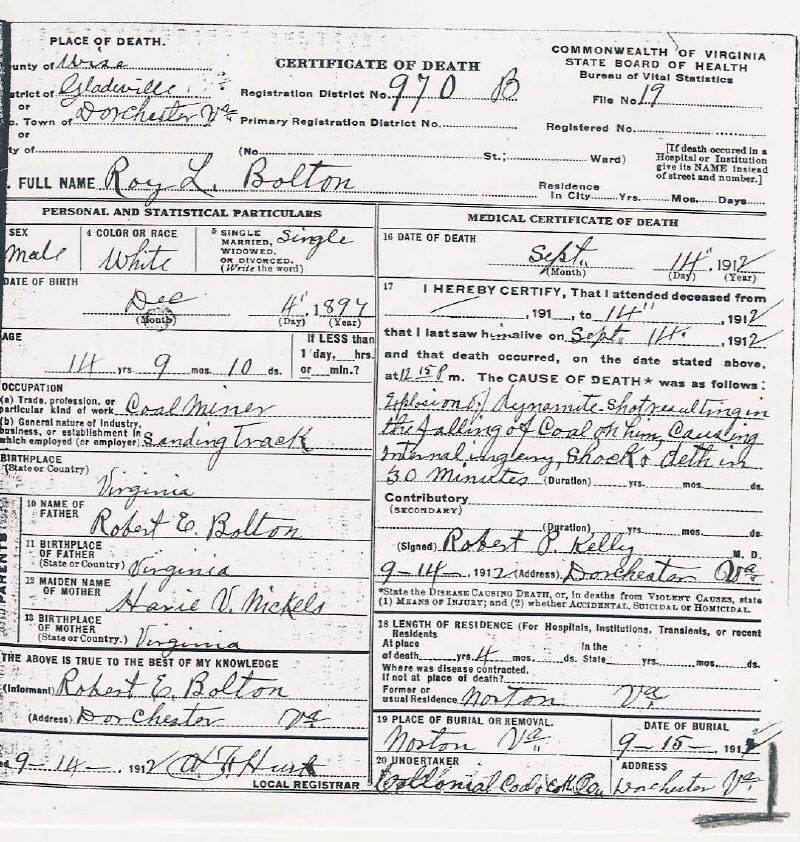 PLACE OF DEATH.
ounty of Wise
CERTIFICATE OF DEATH
COMMONWEALTH OF VIRGINIA
STATE BOARD OF HEALTH
Bureau of Vital Statistics
strict of Gladeville
or
Registration District No. 970 B
File No. 19
c. Town of Dorchester Va
or
Primary Registration District No.
Registered No.
ty of
(No. St.; Ward)
[If death occured in a
Hospital or Institution
give its NAME instead
of street and number.]
. FULL NAME Roy L. Bolton
Residence
In City Yrs. Mos. Days
PERSONAL AND STATISTICAL PARTICULARS
SEX
Male
4 COLOR OR RACE
White
5 SINGLE
MARRIED,
WIDOWED,
OR DIVORCED.
(Write the word)
Single
DATE OF BIRTH
Dec 4", 1897
(Month) (Day) (Year)
AGE
14 yrs. 9 mos. 10 ds.
If LESS than
1 day, hrs.
or min.?
OCCUPATION
(a) Trade, profession, or
particular kind of work Coal Miner
(b) General nature of Industry,
business, or establishment in
which employed (or employer) Sanding Track
BIRTHPLACE
(State or Country)
Virginia
PARENTS
10 NAME OF
FATHER
Robert E. Bolton
11 BIRTHPLACE
OF FATHER
(State or Country) Virginia
12 MAIDEN NAME
OF MOTHER
V. Nickels
13 BIRTHPLACE
OF MOTHER
(State or Country.) Virginia
THE ABOVE IS TRUE TO THE BEST OF MY KNOWLEDGE
(Informant) Robert E. Bolton
(Address) Dorchester Va
ed 9-14-, 1912
LOCAL REGISTRAR
MEDICAL CERTIFICATE OF DEATH
16 DATE OF DEATH
Sept. 14", 1912
(Month) (Day) (Year)
17 I HEREBY CERTIFY, That I attended deceased from
, 191 , to 14", 1912
that I last saw him alive on Sept. 14., 1912
and that death occurred, on the date stated above,
at 12 15 P m. The CAUSE OF DEATH* was as follows:
Explosion of dynamite shot resulting in
the falling of Coal on him, Causing
internal ingury, Shock & deth in
30 Minutes (Duration) yrs. mos. ds.
Contributory
(SECONDARY)
(Duration) yrs. mos. ds.
(Signed) Robert P. Kelly M. D.
9-14-, 1912 (Address) Dorchester Va
*State the DISEASE CAUSING DEATH, or, in deaths from VIOLENT CAUSES, state
(1) MEANS OF INJURY; and (2) whether ACCIDENTAL, SUICIDAL or HOMICIDAL.
18 LENGTH OF RESIDENCE (For Hospitals, Institutions, Transients, or recent
Residents
At place
of death yrs. 4 mos. ds.
In the
State yrs. mos. ds.
Where was disease contracted,
if not at place of death?
Former or
usual Residence Norton Va
19 PLACE OF BURIAL OR REMOVAL.
Norton Va
DATE OF BURIAL
9-15-, 1912
20 UNDERTAKER
Collonial Coal & Coke
ADDRESS
Dorchester Va